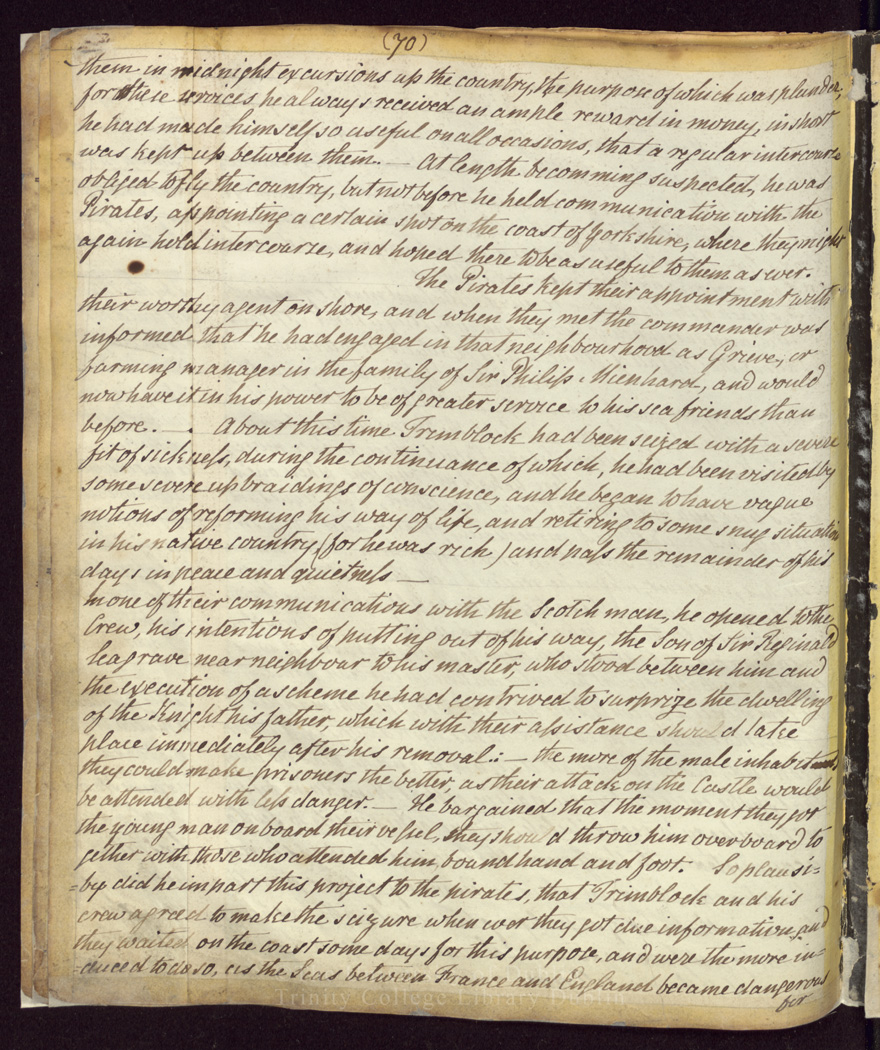 (70)
them in midnight excursions up the country, the purpose of which was plunder;
for these services, he always received an ample reward in money, in short
he had made himself so useful on all occasions, that a regular intercourse
was kept up between them. — At length becomming suspected, he was
obliged to fly the country, but not before he held communication with the
Pirates, appointing a certain spot on the coast of Yorkshire, where they might
again hold intercourse, and hoped there to be as useful to them as ever.
The Pirates kept their appointment with
their worthy agent on shore, and when they met the commander was
informed that he had engaged in that neighbourhood as Grieve, or
farming manager in the family of Sir Philip Mienhard, and would
now have it in his power to be of greater service to his sea friends than
before. — . About this time Trimblock had been seized with a severe
fit of sickness, during the continuance of which, he had been visited by
some severe upbraidings of conscience, and he began to have vague
notions of reforming his way of life, and retiring to some snug situation
in his native country, (for he was rich) and pass the remainder of his
days in peace and quietness —
In one of their communications with the Scotch man, he opened to the
Crew, his intentions of putting out of his way, the Son of Sir Reginald
Seagrave near neighbour to his master, who stood between him and
the execution of a scheme he had contrived to surprize the dwelling
of the Knight his father, which with their assistance should take
place immediately after his removal.: — the more of the male inhabitants
they could make prisoners the better, as their attack on the Castle would
be attended with less danger. — He bargained that the moment they got
the young man on board their vessel, they should throw him overboard to
gether with those who attended him, bound hand and foot. So plausi=
=bly did he impart this project to the pirates, that Trimblock and his
crew agreed to make the seizure when ever they got due information, and
they waited on the coast some days for this purpose, and were the more in=
=duced to do so, as the Seas between France and England became dangerous
for
Trinity College Library Dublin